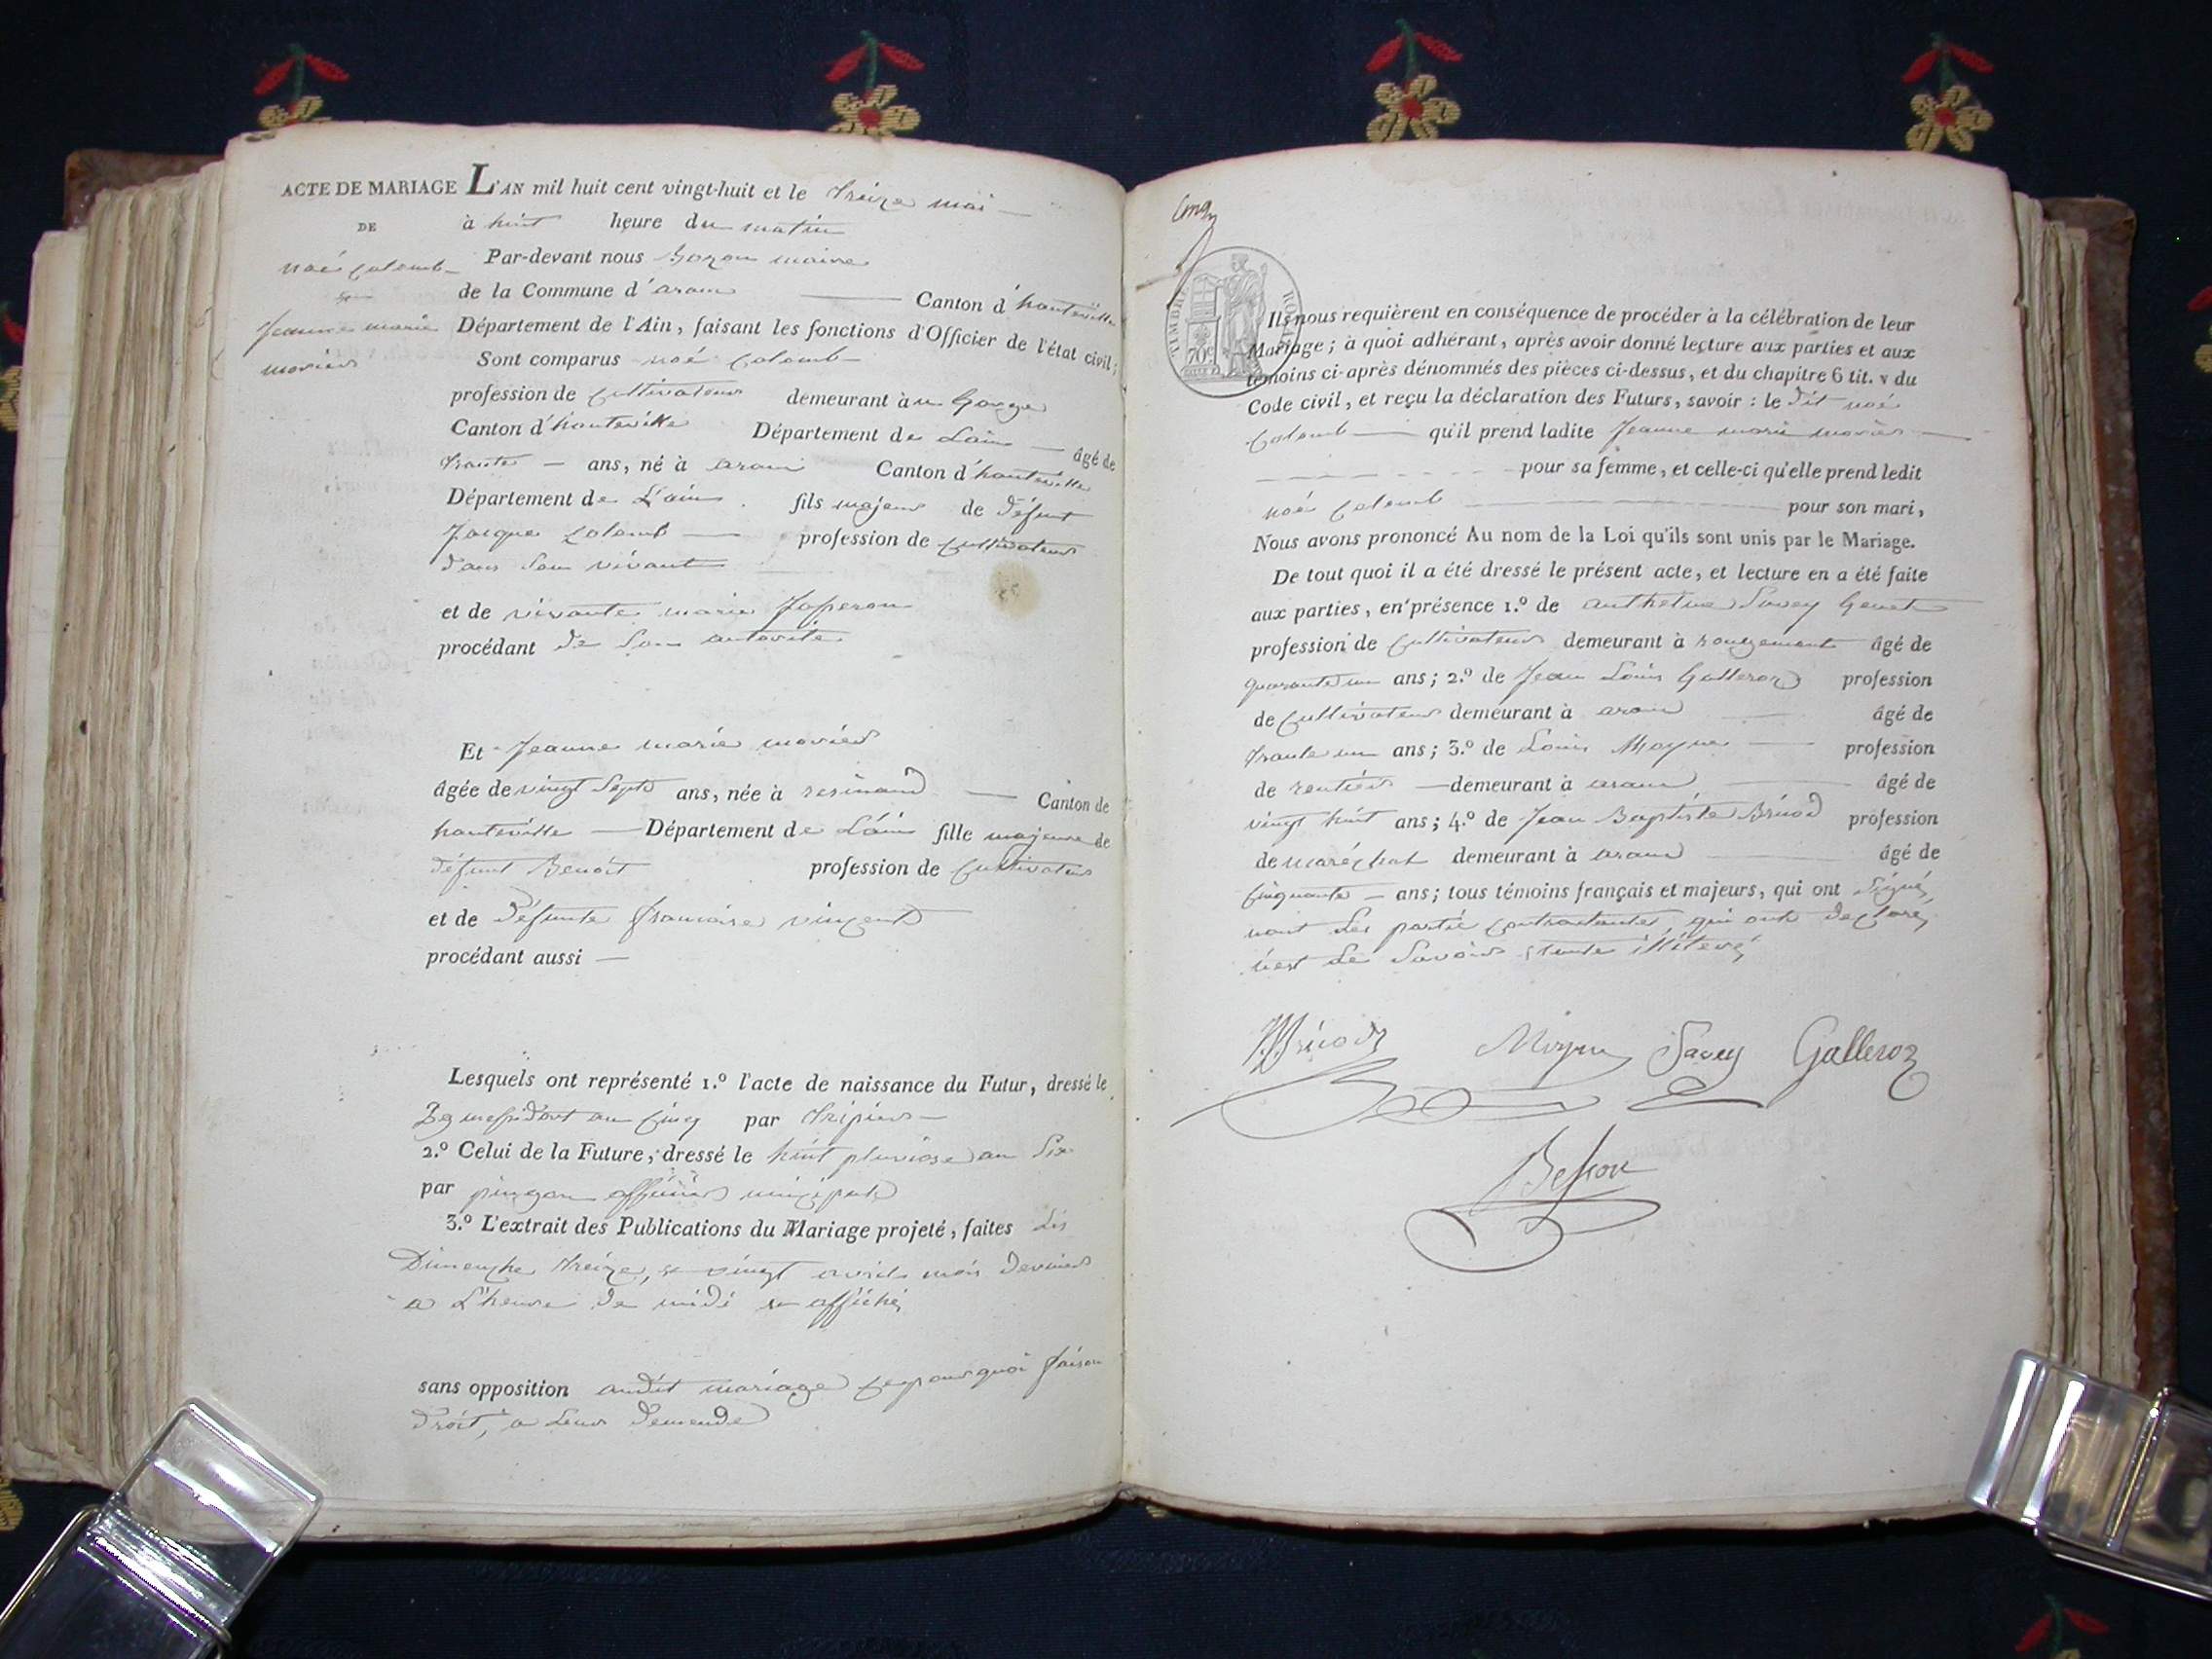 ACTE DE MARIAGE L'AN mil huit cent vingt-huit et le treize mai
DE
à huit heure du matin
noé colomb
Par-devant nous maire
de la Commune d'aranc Canton d'hauteville
Jeanne marie
Département de l'Ain, faisant les fonctions d'Officier de l'état civil;
moviés
Sont comparus noé colomb
profession de cultivateur demeurant à
Canton d'hauteville Département de Lain âgé de
trante ans, né à aranc Canton d'hauteville
Département de L'ain fils majeur de défunt
Jacque colomb profession de cultivateur
dans son vivant
et de vivante marie
procédant de son autorité
Et Jeanne marie moviés
âgée de vingt sept ans, née à Canton de
hauteville Département de L'ain fille majeure de
défunt Benoit profession de cultivateur
et de défunte francoise vincent
procédant aussi
Lesquels ont représenté 1.º l'acte de naissance du Futur, dressé le
29 messidort an cinq par
2.º Celui de la Future, dressé le huit pluviose an six
par
3.º L'extrait des Publications du Mariage projeté, faites
Dimenche treize, et vingt avril mois dernier
a L'heure de midi et affiché
sans opposition audit mariage cepourquoi faisan
droit, a leur demende
cinq
TIMBRE ROYAL
70c
Ils nous requièrent en conséquence de procéder à la célébration de leur
Mariage; à quoi adhérant, après avoir donné lecture aux parties et aux
témoins ci-après dénommés des pièces ci-dessus, et du chapitre 6 tit. v du
Code civil, et reçu la déclaration des Futurs, savoir: le dit noé
colomb qu'il prend ladite Jeanne marie moviés
pour sa femme, et celle-ci qu'elle prend ledit
noé colomb pour son mari,
Nous avons prononcé Au nom de la Loi qu'ils sont unis par le Mariage.
De tout quoi il a été dressé le présent acte, et lecture en a été faite
aux parties, en présence 1.º de anthelme Savey
profession de cultivateur demeurant à rougemont âgé de
quarante un ans; 2.º de Jean Louis Galleroz profession
de cultivateur demeurant à aranc âgé de
trante un ans; 3.º de Louis Moyne profession
de rentiér demeurant à aranc âgé de
vingt huit ans; 4.º de Jean Baptiste Bricod profession
de maréchal demeurant à aranc âgé de
cinquante ans; tous témoins français et majeurs, qui ont signé,
nont les partie contractantes, qui ont declaré,
Bricod Moyne Savey Galleroz